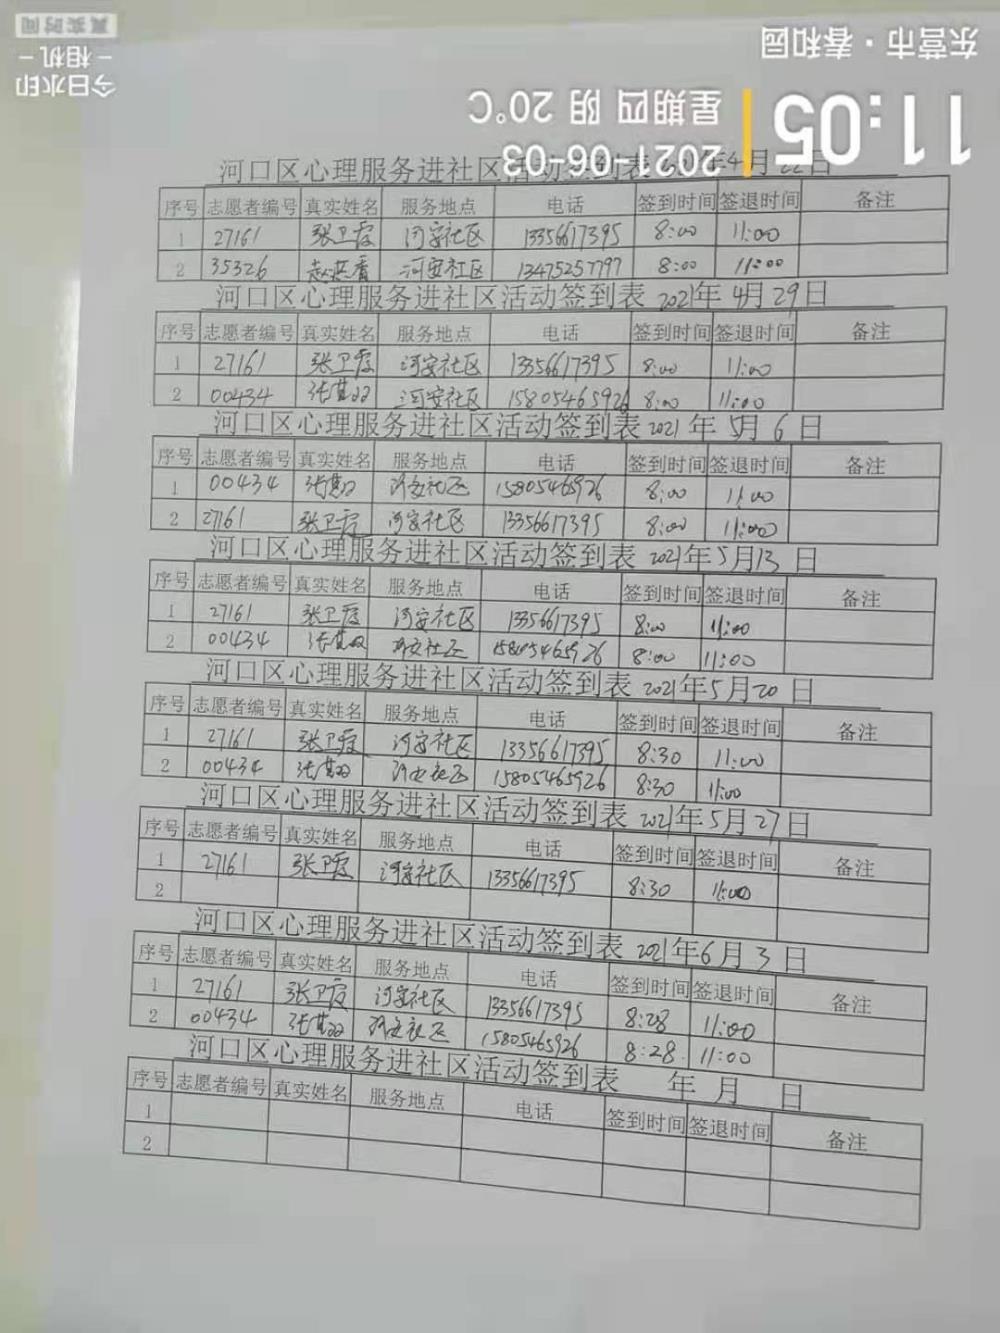 真实时间
今日水印
-相机-
东营市·春和园
11:05
2021-06-03
星期四 阴 20℃
河口区心理服务进社区活动签到表 2021年4月22日
序号 志愿者编号 真实姓名 服务地点 电话 签到时间 签退时间 备注
1 27161 张卫霞 河安社区 13356617395 8:00 11:00
2 35326 赵燕香 河安社区 13475257797 8:00 11:00
河口区心理服务进社区活动签到表 2021年4月29日
序号 志愿者编号 真实姓名 服务地点 电话 签到时间 签退时间 备注
1 27161 张卫霞 河安社区 13356617395 8:00 11:00
2 00434 河安社区 15805465926 8:00 11:00
河口区心理服务进社区活动签到表 2021年5月6日
序号 志愿者编号 真实姓名 服务地点 电话 签到时间 签退时间 备注
1 00434 河安社区 15805465926 8:00 11:00
2 27161 张卫霞 河安社区 13356617395 8:00 11:00
河口区心理服务进社区活动签到表 2021年5月13日
序号 志愿者编号 真实姓名 服务地点 电话 签到时间 签退时间 备注
1 27161 张卫霞 河安社区 13356617395 8:00 11:00
2 00434 河安社区 15805465926 8:00 11:00
河口区心理服务进社区活动签到表 2021年5月20日
序号 志愿者编号 真实姓名 服务地点 电话 签到时间 签退时间 备注
1 27161 张卫霞 河安社区 13356617395 8:30 11:00
2 00434 河安社区 15805465926 8:30 11:00
河口区心理服务进社区活动签到表 2021年5月27日
序号 志愿者编号 真实姓名 服务地点 电话 签到时间 签退时间 备注
1 27161 张卫霞 河安社区 13356617395 8:30 11:00
2
河口区心理服务进社区活动签到表 2021年6月3日
序号 志愿者编号 真实姓名 服务地点 电话 签到时间 签退时间 备注
1 27161 张卫霞 河安社区 13356617395 8:28 11:00
2 00434 河安社区 15805465926 8:28 11:00
河口区心理服务进社区活动签到表 年 月 日
序号 志愿者编号 真实姓名 服务地点 电话 签到时间 签退时间 备注
1
2